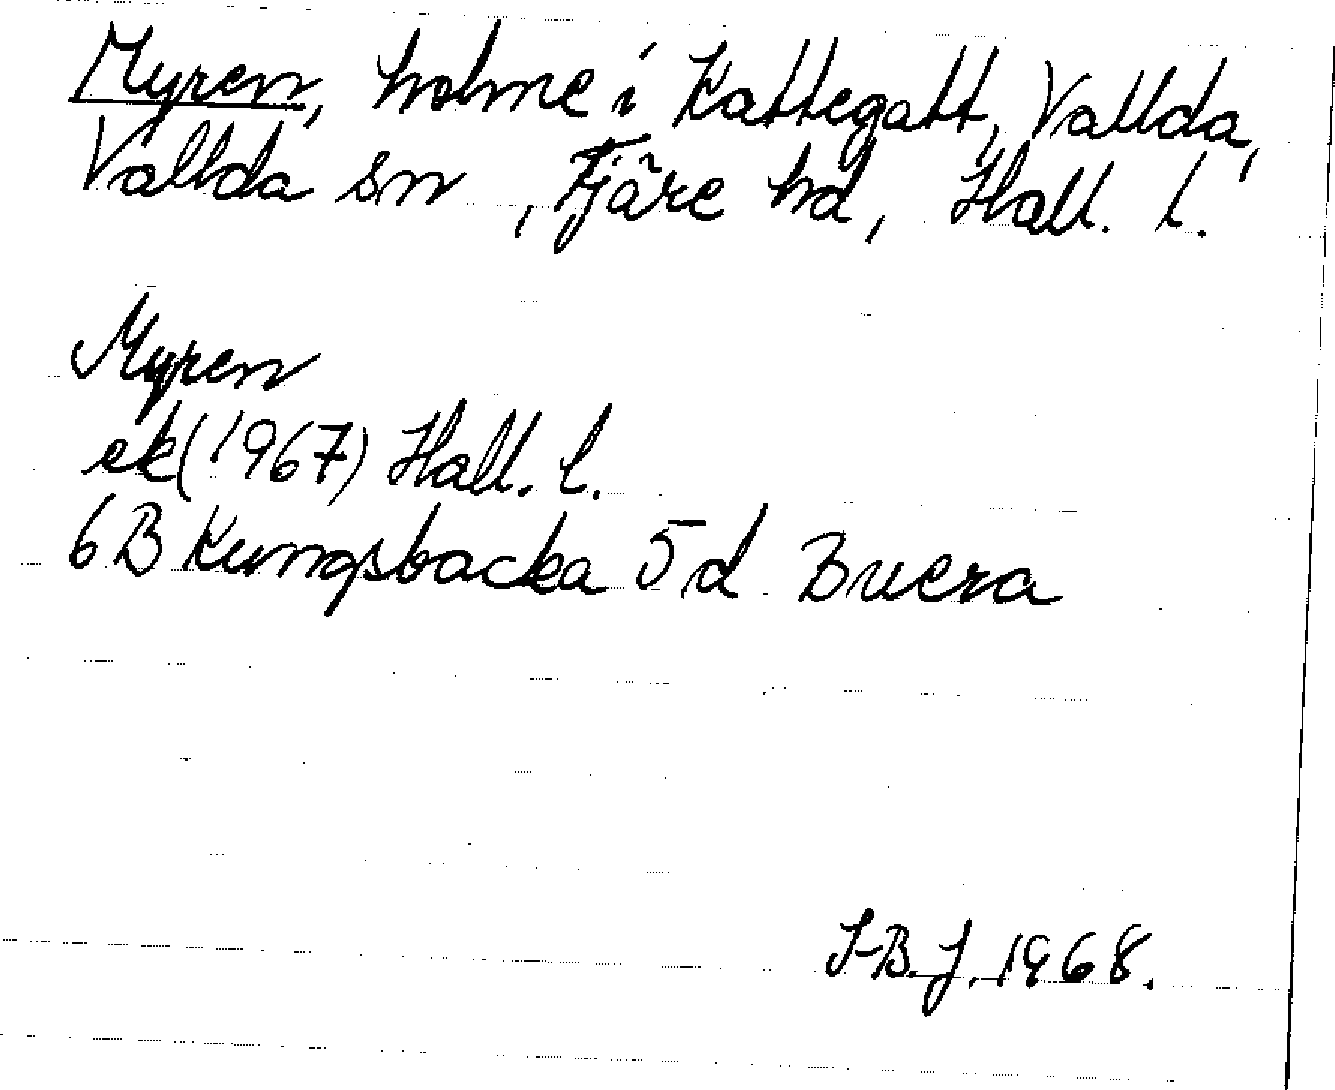 Myren, holme i Kattegatt, Vallda,
Vallda sn, Fjäre hd, Hall. l.
Myren
ek (1967) Hall. l.
6B Kungsbacka 5d Buera
I-B. J. 1968.